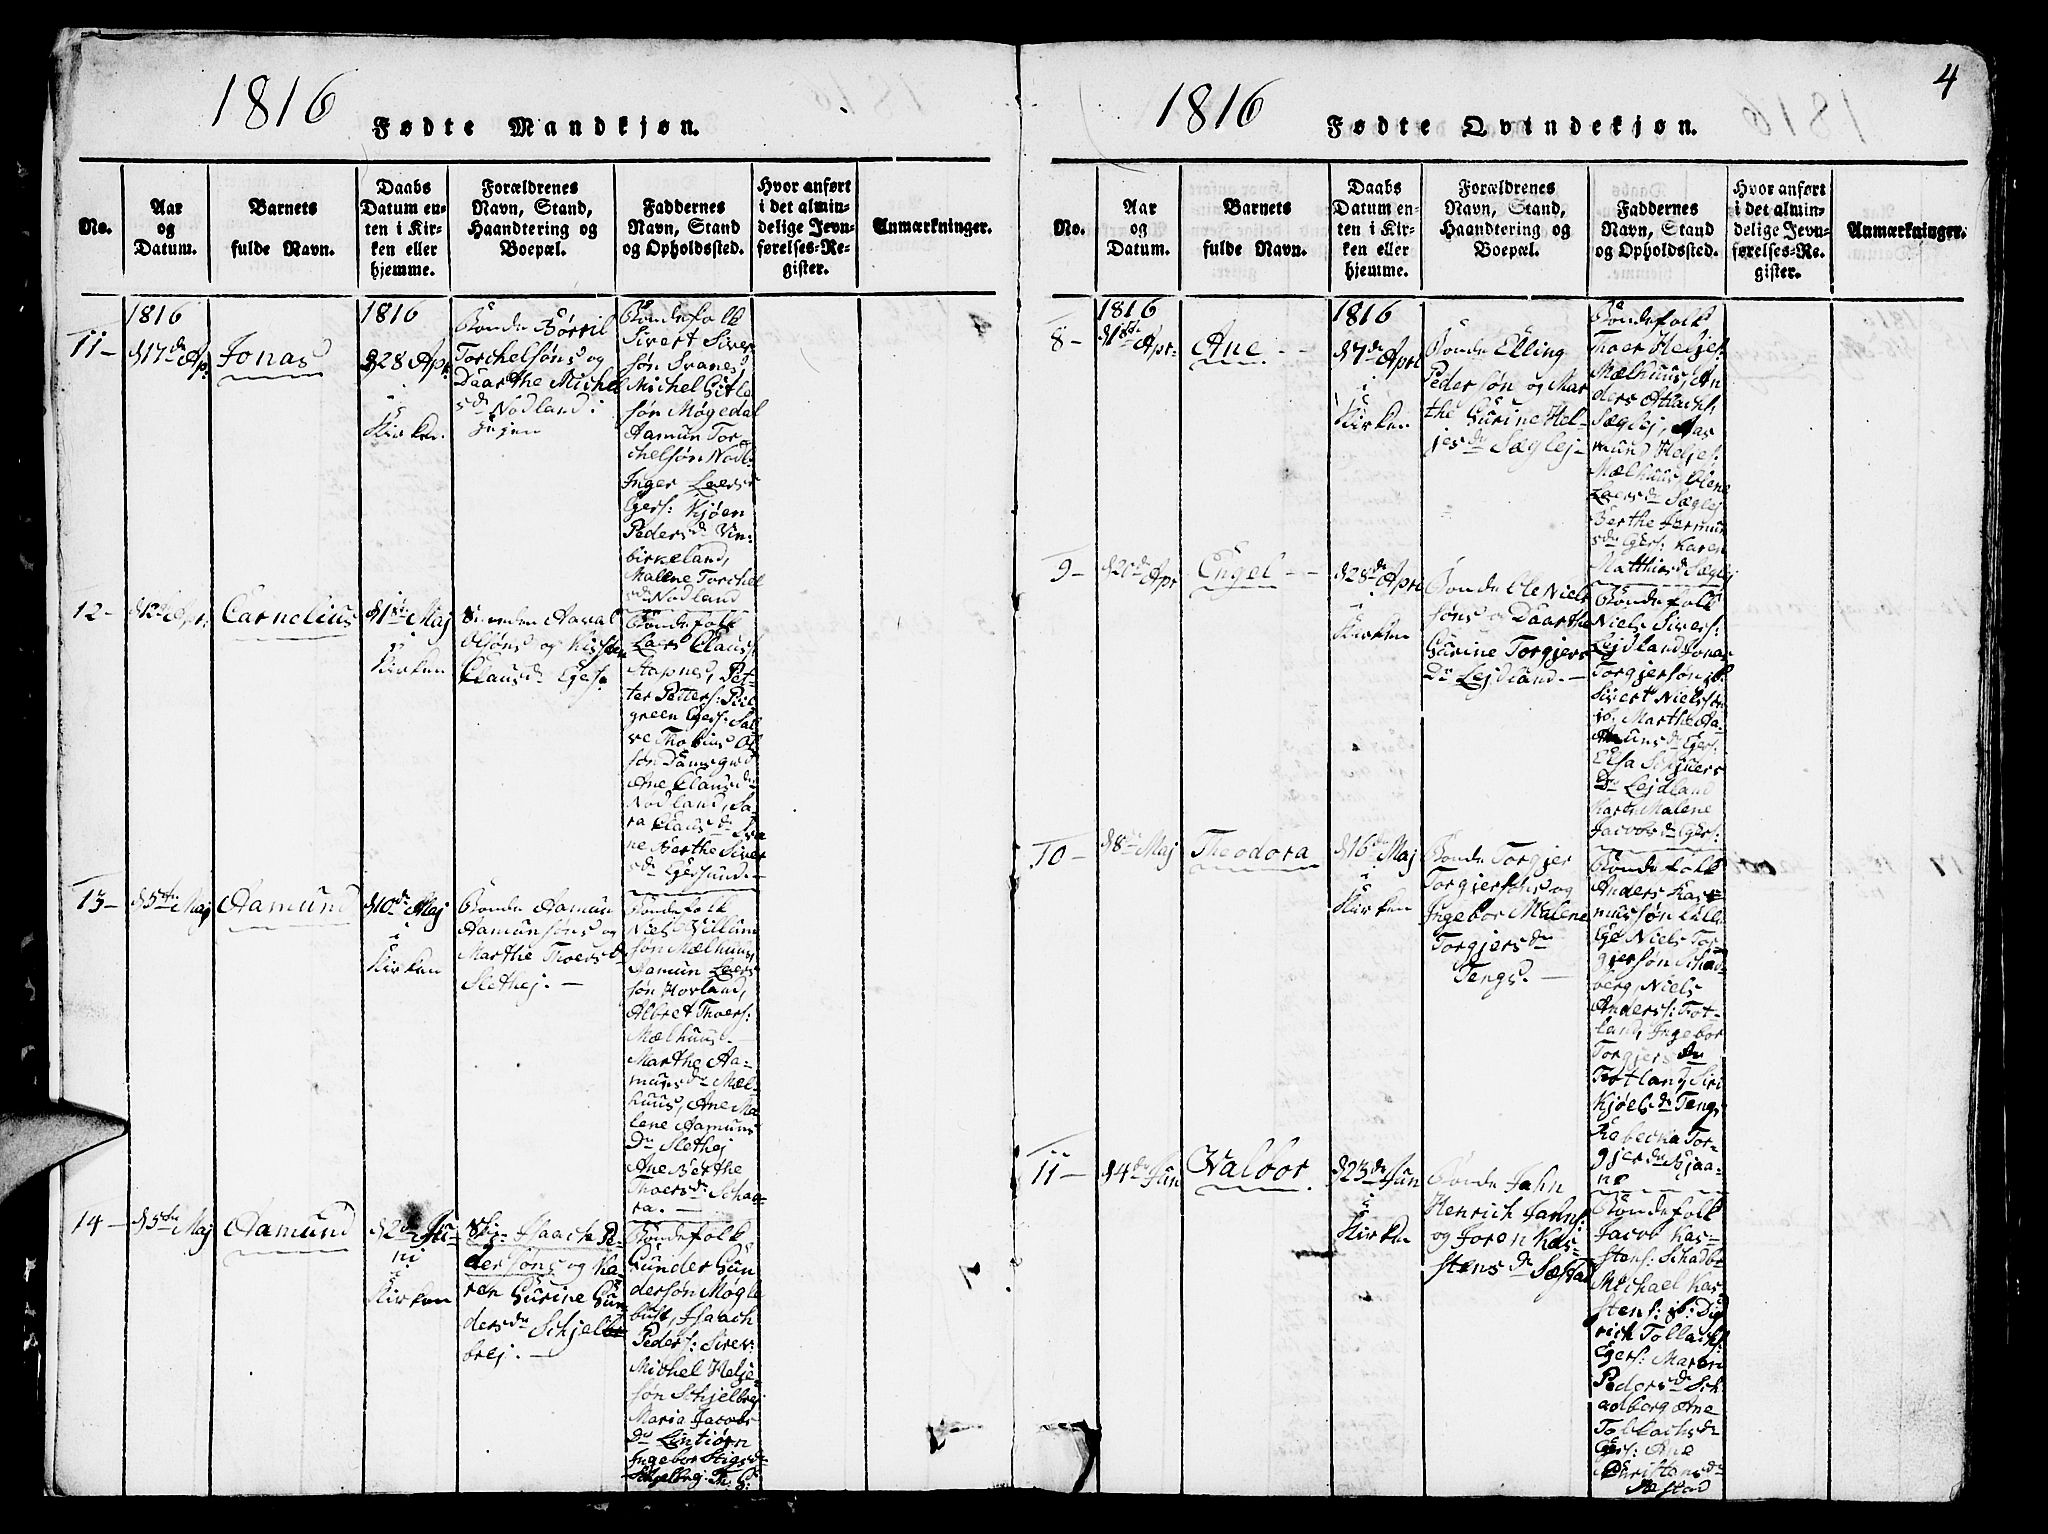 4
1816
Fødte Mandkjøn.
No.
Aar
og
Datum.
Barnets
fulde Navn.
Daabs
Datum en-
ten i Kir-
ken eller
hjemme.
Forældrenes
Navn, Stand,
Haandtering og
Boepæl.
Faddernes
Navn, Stand
og Opholdssted.
Hvor anført
i det almin-
delige Jevn-
førelses-Re-
gister.
Anmærkninger.
11-
1816
d 17de Ap:
Jonas
1816
d 28 Apr
i
Kirken.
Bonde Børril
Torchelsøns og
Daarthe Michel
sdr Nodland
Bondefolk
Sivert Siver
søn Svanes,
Michel Gitle
søn Møgedal
Aamun Tor
chelsøn Nodl:
Inger Laers
Egers: Kjøen
Pedersdr Vin-
birkeland,
Malene Torchel
sdr Nodland
12-
Carnelius
d 1ste Maj
i
Kirken
Aaval
olsøns og Kisten
Clausdr Egers:
Bondefolk
Laers Clauss:
Aapnes, Pet-
ter Petters: Peil
green Egers: Sal
ve Thobias Ol
søn Damsgrd
Ane Clausdr
Nodland, Sa-
ra Clausdr Sva
ne Berthe Siver
sdr Egersund. -
13-
d 5te Maj
Aamund
d 10de Maj
i
Kirken
Bonde Aamun
Aamunsøns og
Marthe Thoersdr
Slethej. -
Bondefolk
Niels Villum
søn Mælhuus,
Aamun Laers
søn Hovland,
Albret Thoers:
Mælhuus -
Marthe Aa-
munsdr Mæl-
huus, Ane Ma
lene Aamuns
Dr Slethej
Ane Berthe
Thoersdr Schaa-
ra. -
14-
d 5te Maj
Aamund
d 2de Ju-
ni
i
Kirken
Isaach Pe-
dersøns og Ka-
ren Gurine Gun-
dersdr Schjel
brej. -
Bondefolk
Gunder Gun
dersøn Møgle
bust, Isaach
Peders: Sirev:
Michel Helje-
søn Schjelbrej
Maria Jacobs
Dr Lintiørn
Ingebor Stigsdr
Schjelbrej:
1816
Fødte Qvindekjøn.
No.
Aar
og
Datum.
Barnets
fulde Navn.
Daabs
Datum en-
ten i Kir-
ken eller
hjemme.
Forældrenes
Navn, Stand,
Haandtering og
Boepæl.
Faddernes
Navn, Stand
og Opholdssted.
Hvor anført
i det almin-
delige Jevn-
førelses-Re-
gister.
Anmærkninger.
8-
1816
d 1ste Apr:
Ane - -
1816
d 7de Apri
i
Kirken
Bonde Elling
Pedersøn og Mar
the Gurine Hel-
jesdr Sæglej-
Bondefolk
Thoer Heljes:
Mælhuus, An
ders Atlachs:
Sæglej, Aas
mund Heljes:
Mælhuus, Olene
Laersdr Sæglej
Berthe Jermun
sdr Egers: Karen
Matthiasdr Sæglej
9-
d 20de Apr
Engel - -
d 28de Apri
i
Kirken
Bonde Ole Niel
søns og Daarthe
Gurine Torgjers
Dr Lejdland. -
Bondefolk
Niels Sivers:
Lejdland Jonas
Torgjersøn ib
Sivert Nielssøn
ib. Marthe Aa-
munsdr Egers:
Elsa Schjuers
Dr Lejdland
Karen Malene
Jacobsdr Egers:
10-
d 8de Maj
Theodora
d 16de Maj
i
Kirken
Bonde Torgjer
Torgjersøns og
Ingebor Malene
Torgjersdr
Tengs. -
Bondefolk
Anders Ras-
mussøn Lille
Ege Niels Tor-
gjersøn Schad-
berg, Niels
Anderss: Tot-
land, Ingebor
Torgjersdr
Totland, Siri
Kjøelsdr Tengs
Rebecka Tor-
gjersdr Bjaa-
ne
11-
d 4de Jun
Valbor
d 23de Jun
i
Kirken
Bonde Jahn
Henrich Janns:
og Joren Kas-
stensdr Sæstad
Bondefolk
Jacob Kas-
stens: Schadbr
Michael Kar-
stens: ib: Did
rich Tollachs:
Egers: Maren
Pedersdr Sch
adberg Ane
Tollachsdr
Egers: Ane
Christensdr
Sæstad